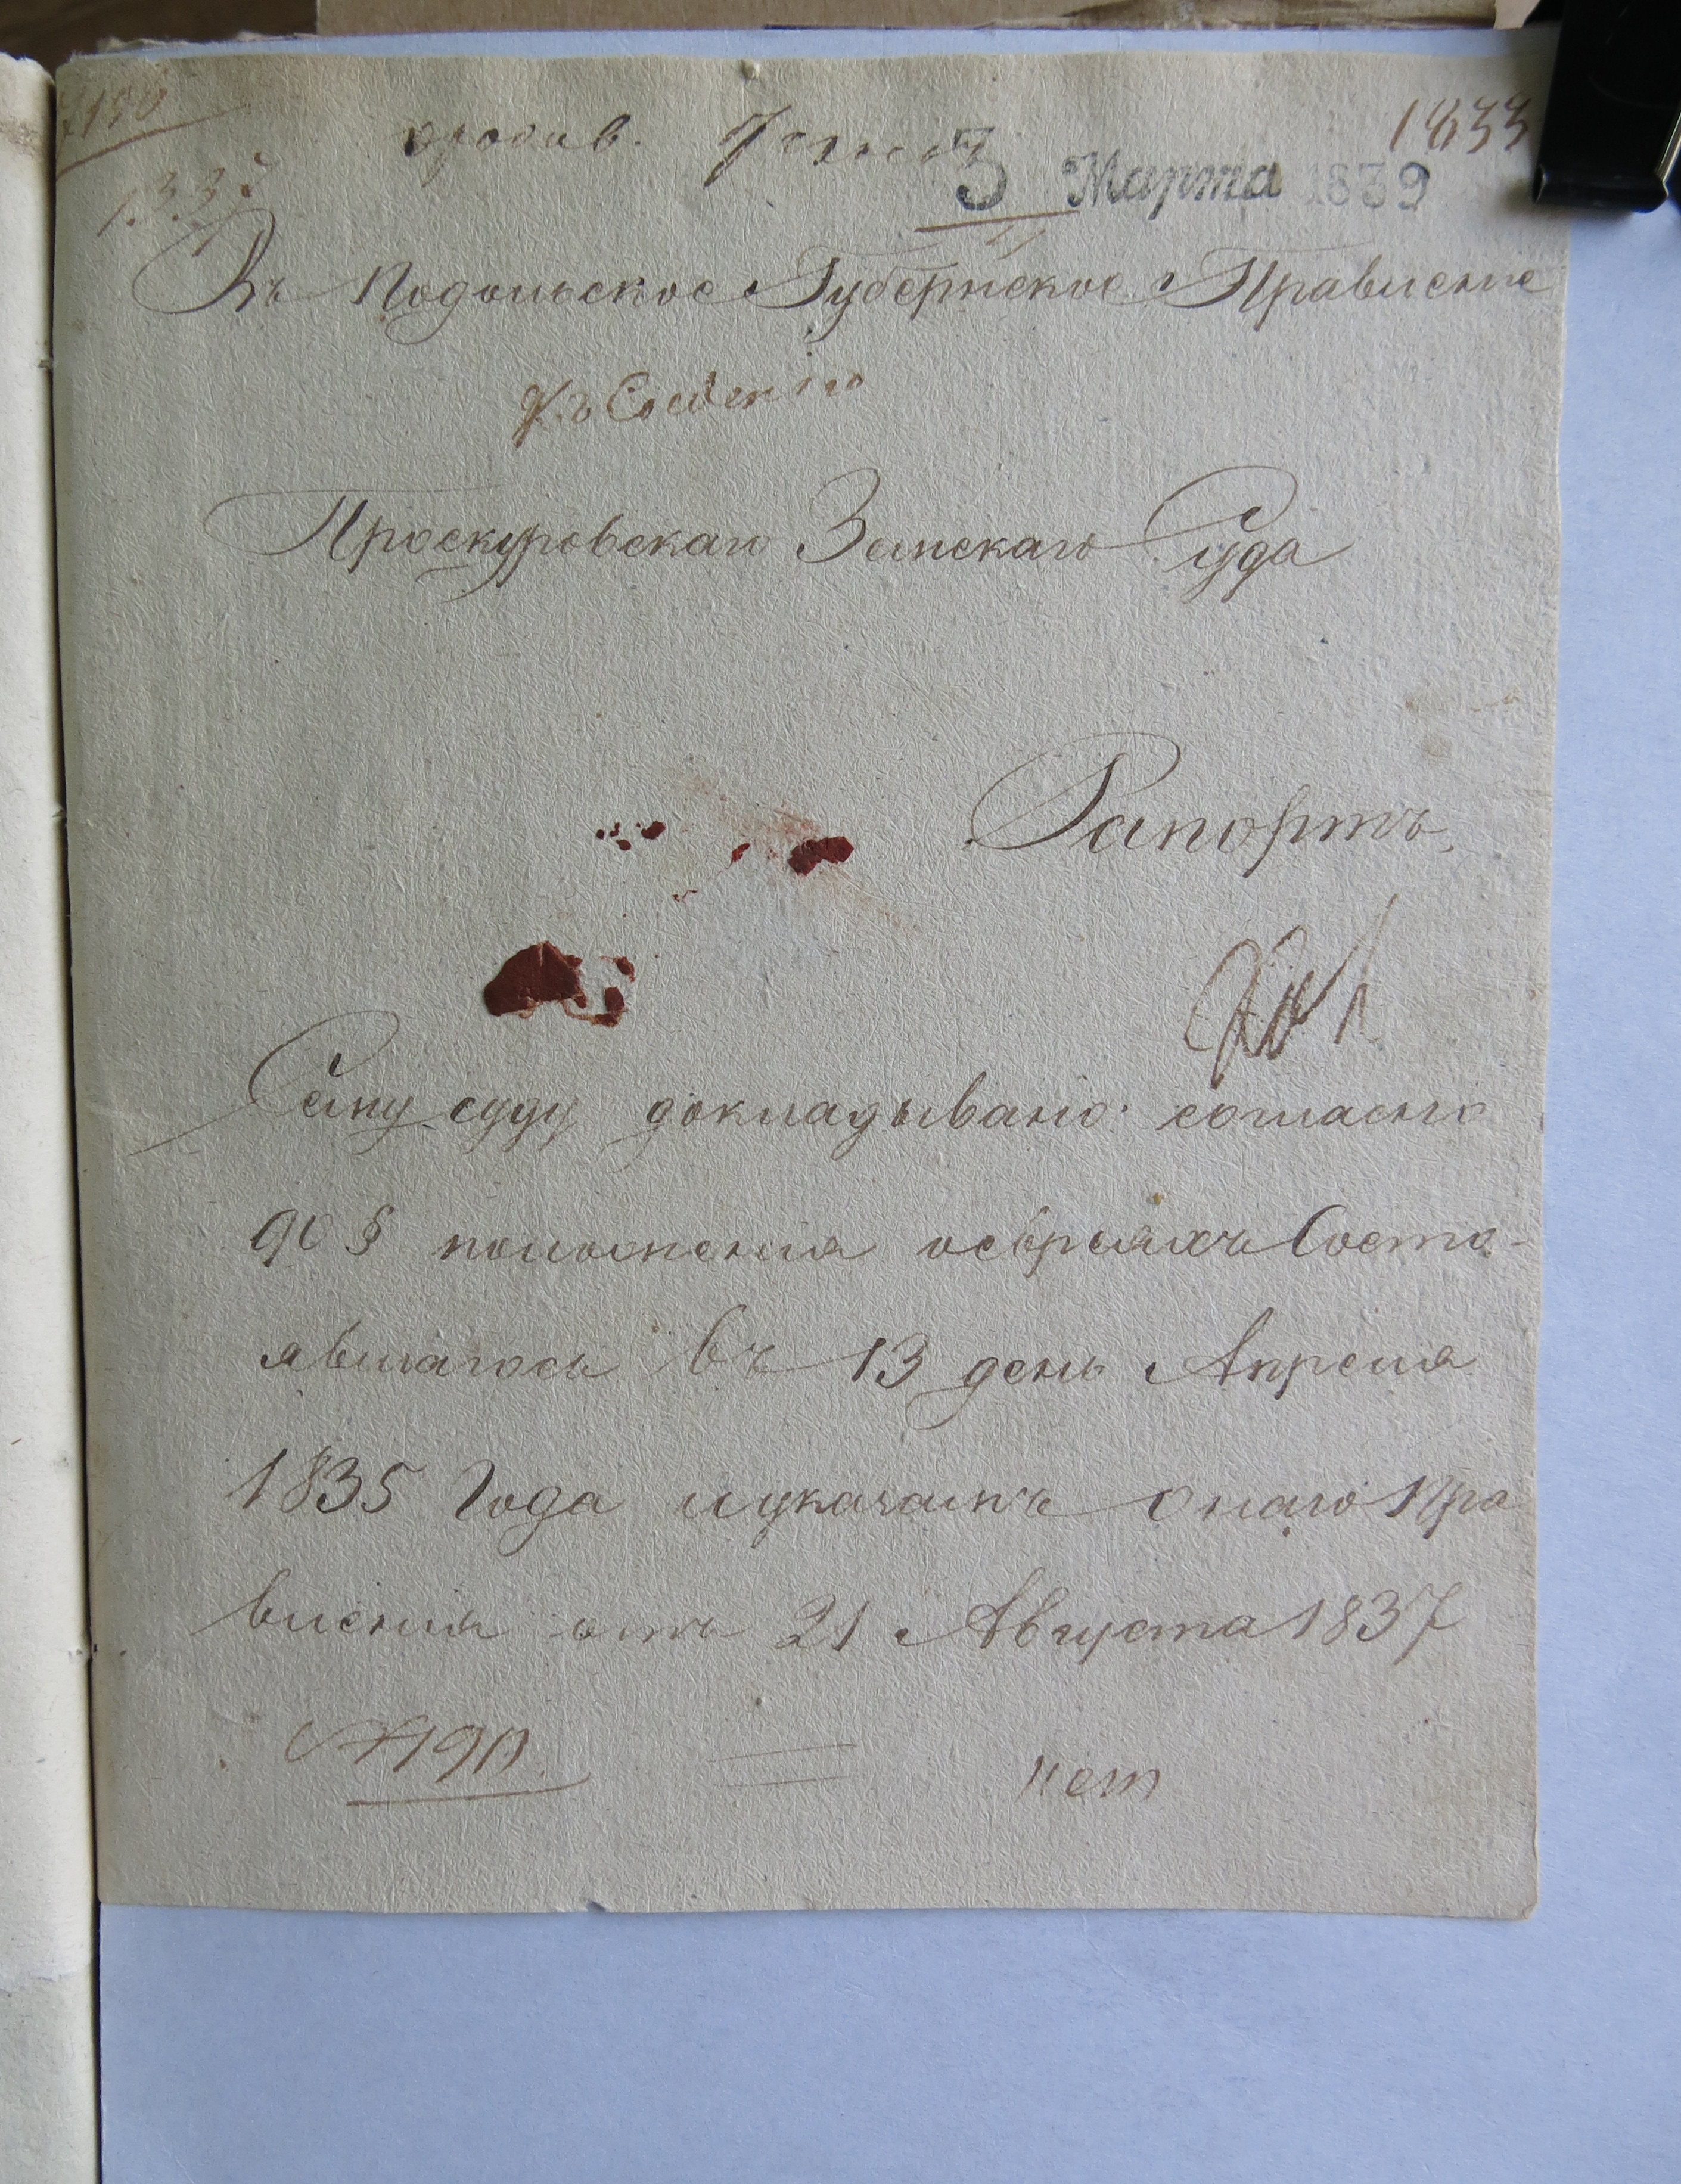 1833
3 Марта 1839
Въ Подольское Губернское Правленіе
Къ
Проскуровскаго Земскаго Суда
Рапортъ.
Сему суду докладывано: согласно
90 § положенія о евреяхъ Состо-
явшагось въ 13 день Апреля
1835 Года и указамъ онаго Пра
вленія отъ 21 Августа 1837